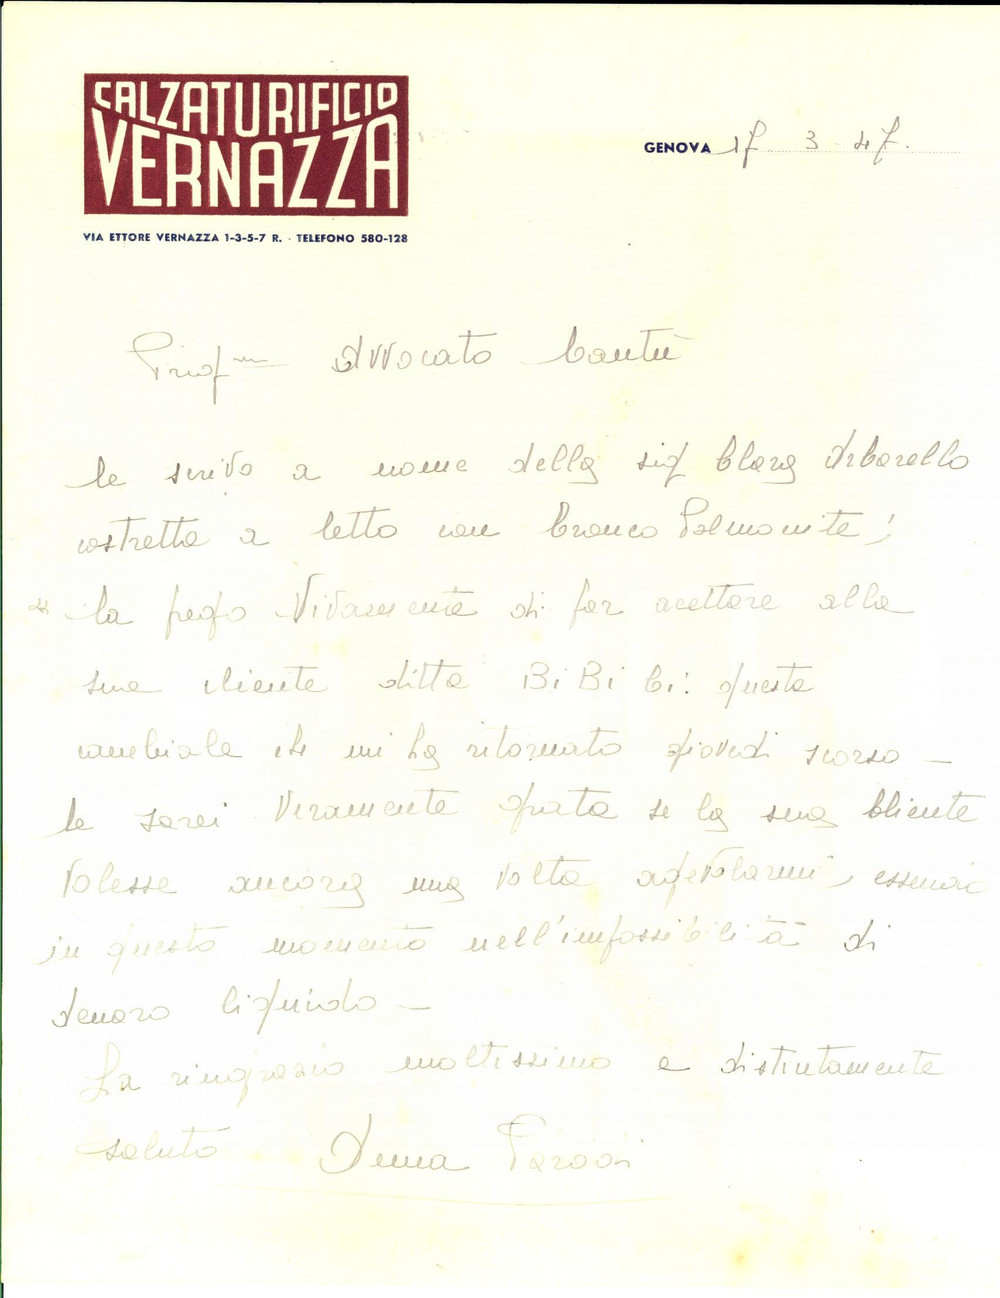 CALZATURIFICIO
VERNAZZA
VIA ETTORE VERNAZZA 1-3-5-7 R. - TELEFONO 580-128
GENOVA 17. 3 - 47.
Avvocato Cantù
Le scrivo a nome della sig Clara Arbarello
costretta a letto con Bronco Polmonite;
La prego Vivamente di far acettare alla
sua cliente ditta Bi Bi Ci: questa
cambiale che mi ha ritornato giovedi scorso -
Le sarei Veramente grata se la sua Cliente
Volesse ancora una volta agevolarmi, essendo
in questo momento nell'impossibilità di
denaro liquido -
La ringrazio moltissimo e distintamente
saluto Anna Parodi